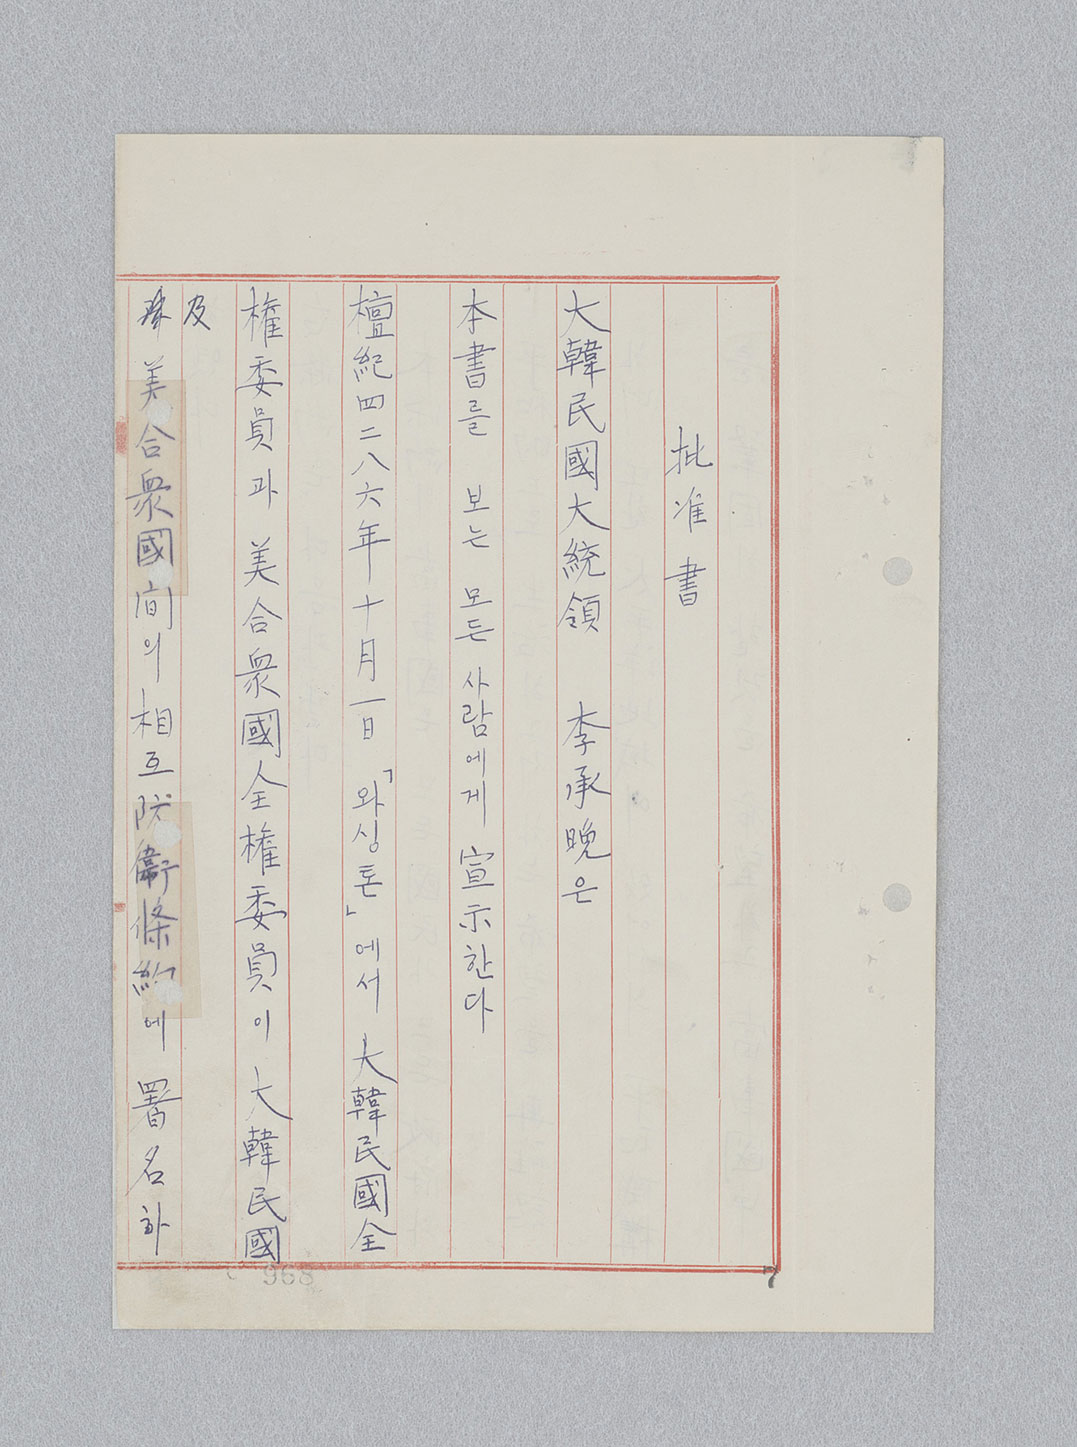 批准書
大韓民國大統領 李承晩은
本書를 보는 모든 사람에게 宣示한다
檀紀四二八六年十月一日 「와싱톤」에서 大韓民國全
權委員과 美合衆國全權委員이 大韓民國
及
美合衆國間의 相互防衛條約에 署名하
968
7